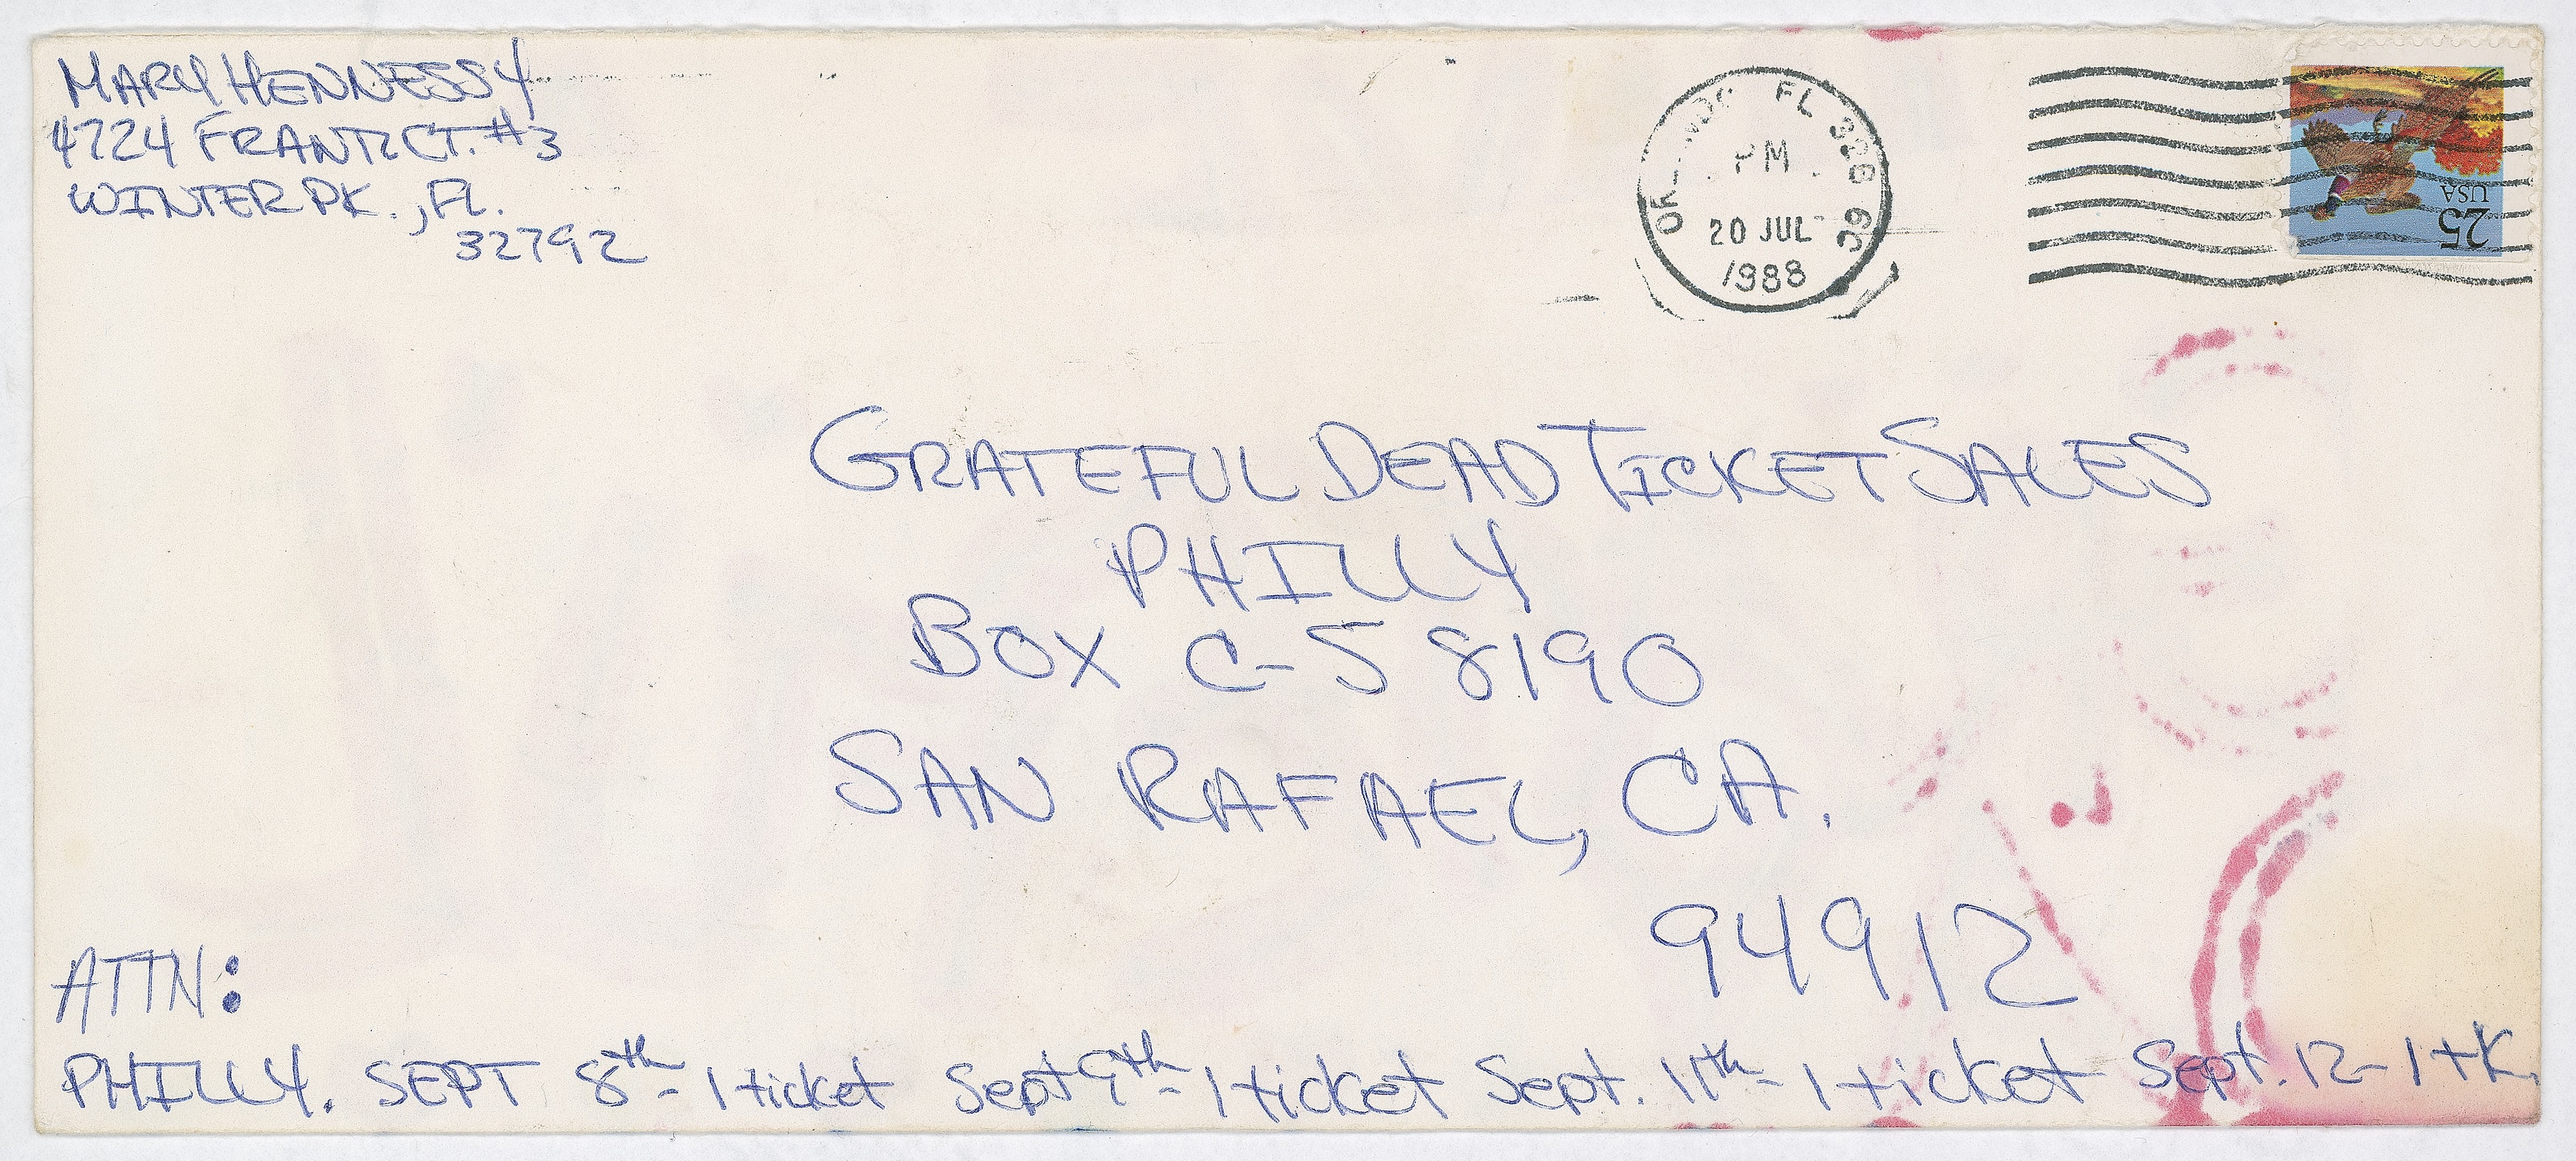 MARY HENNESSY
4224 FRANTZ CT. #3
WINTER PK., FL.
32792
FL 328
PM
20 JUL
1988
USA
25
GRATEFUL DEAD TICKET SALES
PHILLY
BOX C-S 8190
SAN RAFAEL, CA.
94912
ATTN:
PHILLY. SEPT 8th - 1 ticket Sept 9th - 1 ticket Sept. 11th - 1 ticket Sept. 12 - 1 tK.